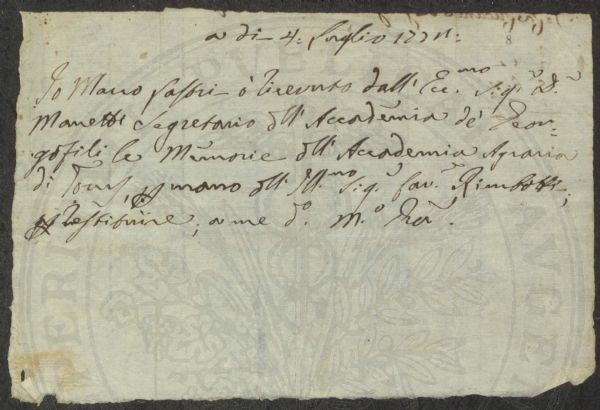 a di 4: Luglio 1771:
Io Marco Lastri ò ricevuto dall' Ecc.mo Sig.r D.r
Manetti Segretario dell' Accademia de' Geor-
gofili le Memorie dell' Accademia Agraria
di Tours, p mano dell' Ill.mo Sig.r Cav.r Rimbotti;
p restituire, a me d.o M.o